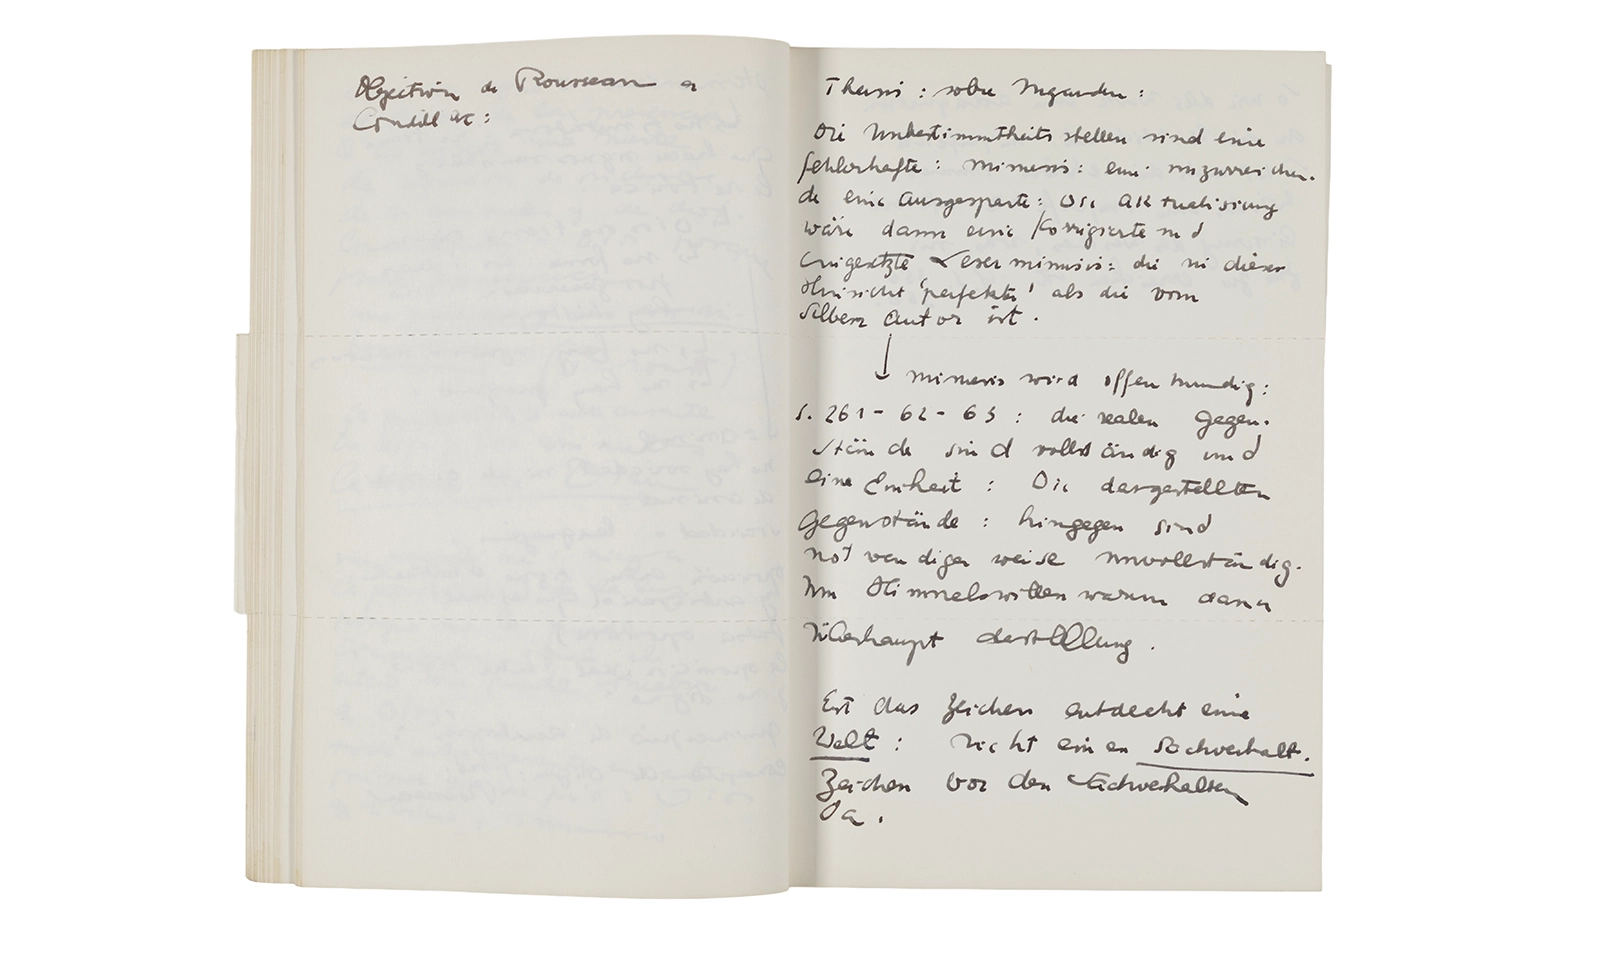 Objection de Rousseau a
Condillac:
Thesis: sobre Ingarden:
Die Unbestimmtheitsstellen sind eine
fehlerhafte: mimesis: eine unzureichen-
de eine Ausgesparte: Die Aktualisierung
wäre dann eine korrigierte und
eingesetzte Lesermimesis: die in dieser
Hinsicht 'perfekte' als die vom
selben Autor ist.
mimesis wird offenkundig:
S. 261-62-63: die realen Gegen-
stände sind vollständig und
eine Einheit: Die dargestellten
Gegenstände: hingegen sind
notwendigerweise unvollständig.
Um Himmelswillen warum dann
überhaupt darstellung.
Erst das Zeichen entdeckt eine
Welt: nicht einen Sachverhalt.
Zeichen vor den Sachverhalten
da.